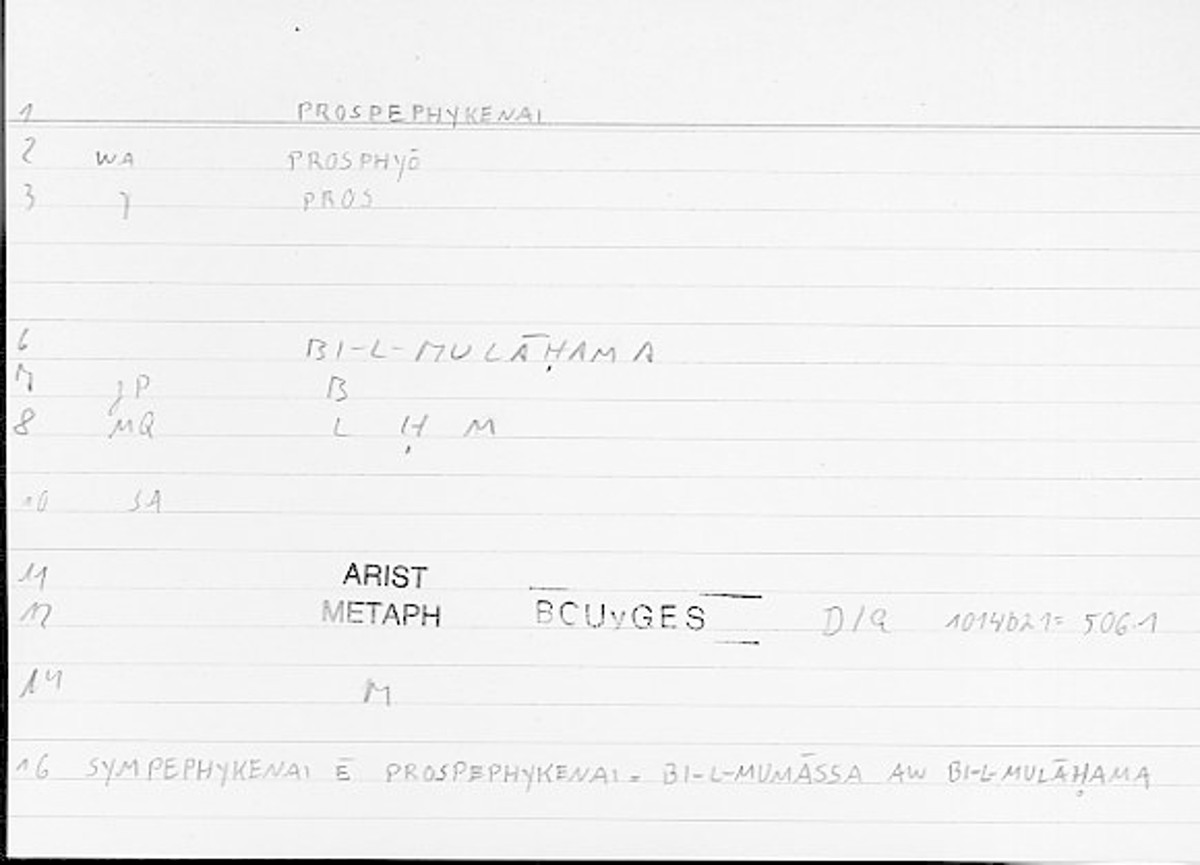 1 PROSPEPHYKENAI
2 WA PROSPHYŌ
3 γ PROS
6 BI-L-MULĀḤAMA
7 gP B
8 MQ L Ḥ M
10 SA
11 ARIST
12 METAPH BCUyGES D/a 1014b21= 506.1
14 M
16 SYMPEPHYKENAI Ē PROSPEPHYKENAI = BI-L-MUMĀSSA AW BI-L-MULĀḤAMA